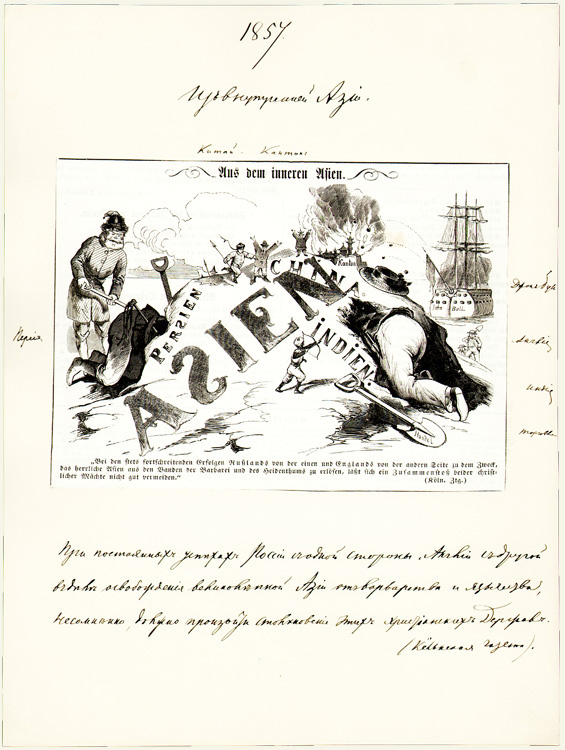 1857
Изъ внутренней Азіи.
Китай - Кантонъ
Aus dem inneren Asien.
Kanton
CHINA
PERSIEN
ASIEN
INDIEN
John Bull
Handel
Персія
Джонъ Буль
Индія
торговля
„Bei den stets fortschreitenden Erfolgen Rußlands von der einen und Englands von der andern Seite zu dem Zweck,
das herrliche Asien aus den Banden der Barbarei und des Heidenthums zu erlösen, läßt sich ein Zusammenstoß beider christ-
licher Mächte nicht gut vermeiden.“
(Köln. Ztg.)
При постоянныхъ успѣхахъ Россіи съ одной стороны, Англіи съ другой
освобожденія великолѣпной Азіи отъ варварства и язычества,
несомнѣнно, должно произойти столкновеніе этихъ христіанскихъ державъ.
(Кёльнская газета).